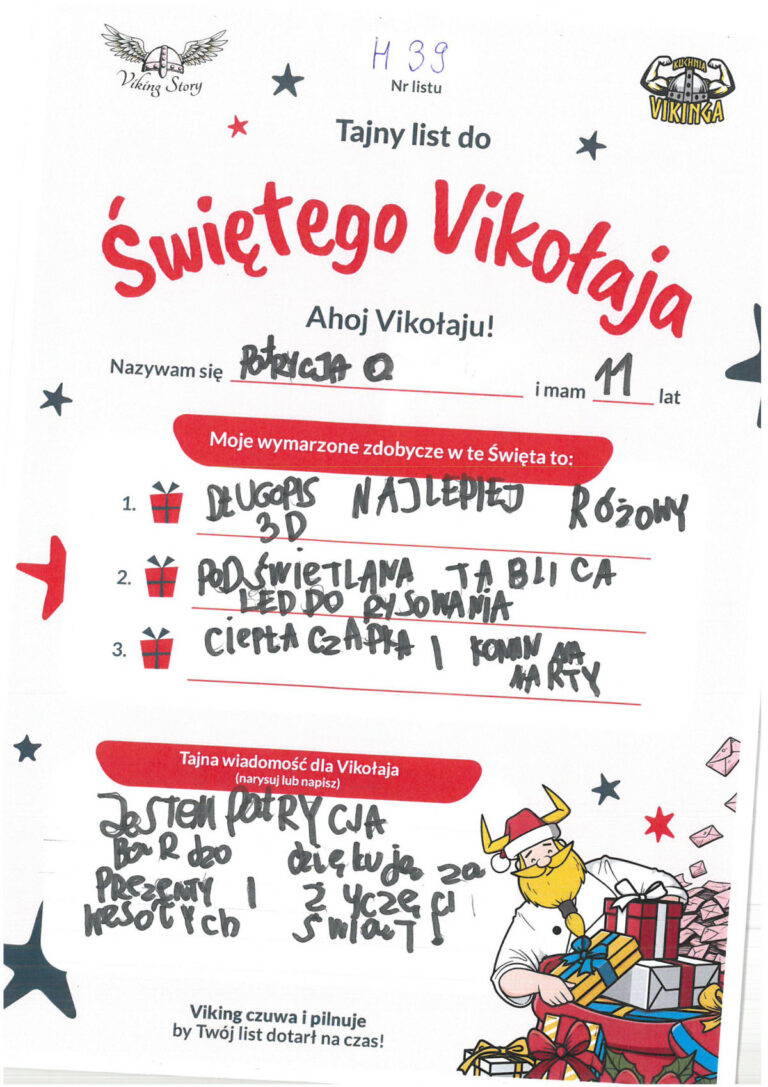 Viking Story
H 39
Nr listu
KUCHNIA
VIKINGA
Tajny list do
Świętego Vikołaja
Ahoj Vikołaju!
Nazywam się PATRYCJA O i mam 11 lat
Moje wymarzone zdobycze w te Święta to:
1. DŁUGOPIS NAJLEPIEJ RÓŻOWY
3D
2. PODŚWIETLANA TABLICA
LED DO RYSOWANIA
3. CIEPŁA CZAPKA I KOMIN NA
NARTY
Tajna wiadomość dla Vikołaja
(narysuj lub napisz)
JESTEM PATRYCJA
BARDZO dziękuję za
PREZENTY I ŻYCZĘ CI
WESOŁYCH ŚWIĄT!
Viking czuwa i pilnuje
by Twój list dotarł na czas!